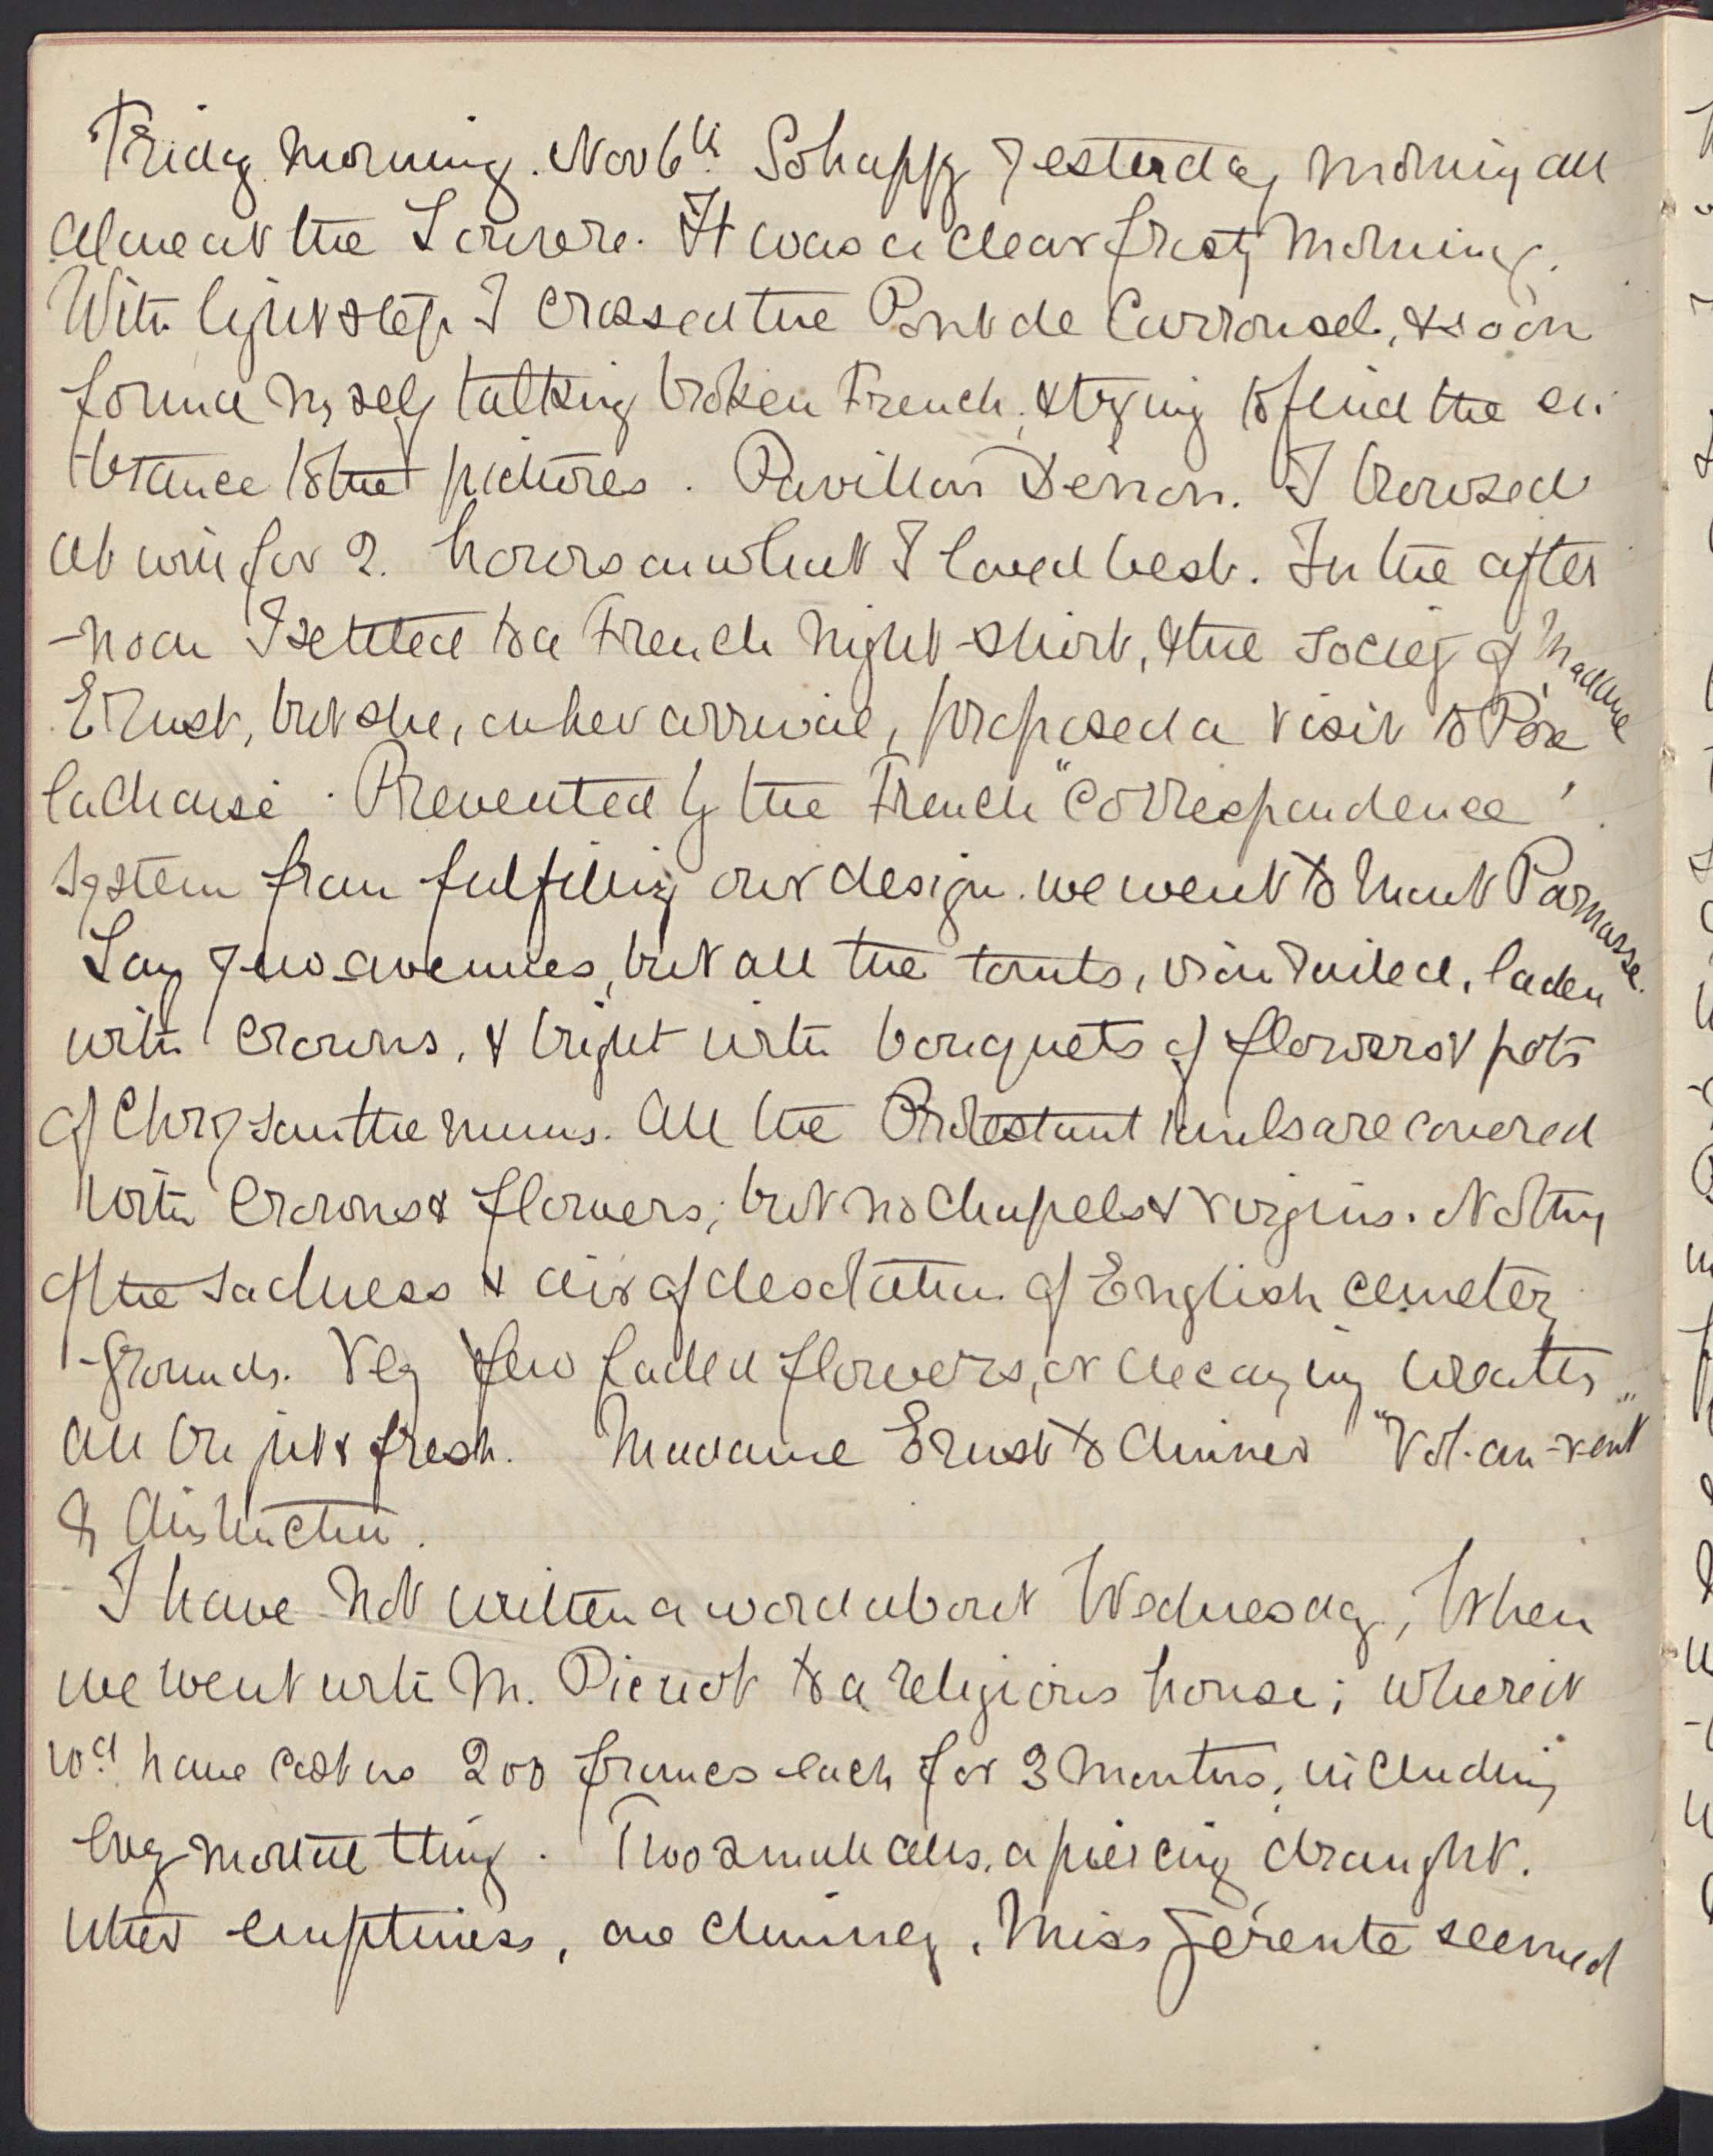 Friday Morning. Nov 6th. So happy yesterday morning all
alone at the Louvre. It was a clear frosty morning.
With light step I crossed the Pont de Carrousel, & soon
found myself talking broken French, & trying to find the en-
-trance to the pictures. Pavillon Denon. I browsed
at will for 2. hours on what I loved best. In the after
-noon I settled to a French night-shirt, & the society of Madame
Ernst, but she, on her arrival, proposed a visit to Père
lachaise. Prevented by the French "correspondence"
system from fulfilling our design. we went to Mont Parnasse.
Long yew avenues, but all the tombs, laden
with crowns, & bright with bouquets of flowers & pots
of Chrysanthemums. All the Protestant tombs are covered
with crowns & flowers; but no chapels & virgins. Nothing
of the sadness & air of desolation of English cemetery
-grounds. Very few faded flowers, or decaying wreaths
all bright & fresh. Madame Ernst to dinner "Vol-au-vent"
& distinction.
I have not written a word about Wednesday, when
we went with M. Pierrot to a religious house; where it
wd. have cost us 200 francs each for 3 months, including
every mortal thing. Two small cells, a piercing draught.
utter emptiness, one chimney. Miss Gérente seemed